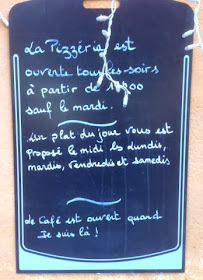 La Pizzéria est
ouverte tous les soirs
à partir de 19h00
sauf le mardi.
Un plat du jour vous est
Proposé le midi les lundis,
mardis, vendredis et samedis
Le Café est ouvert quand
Je suis là !